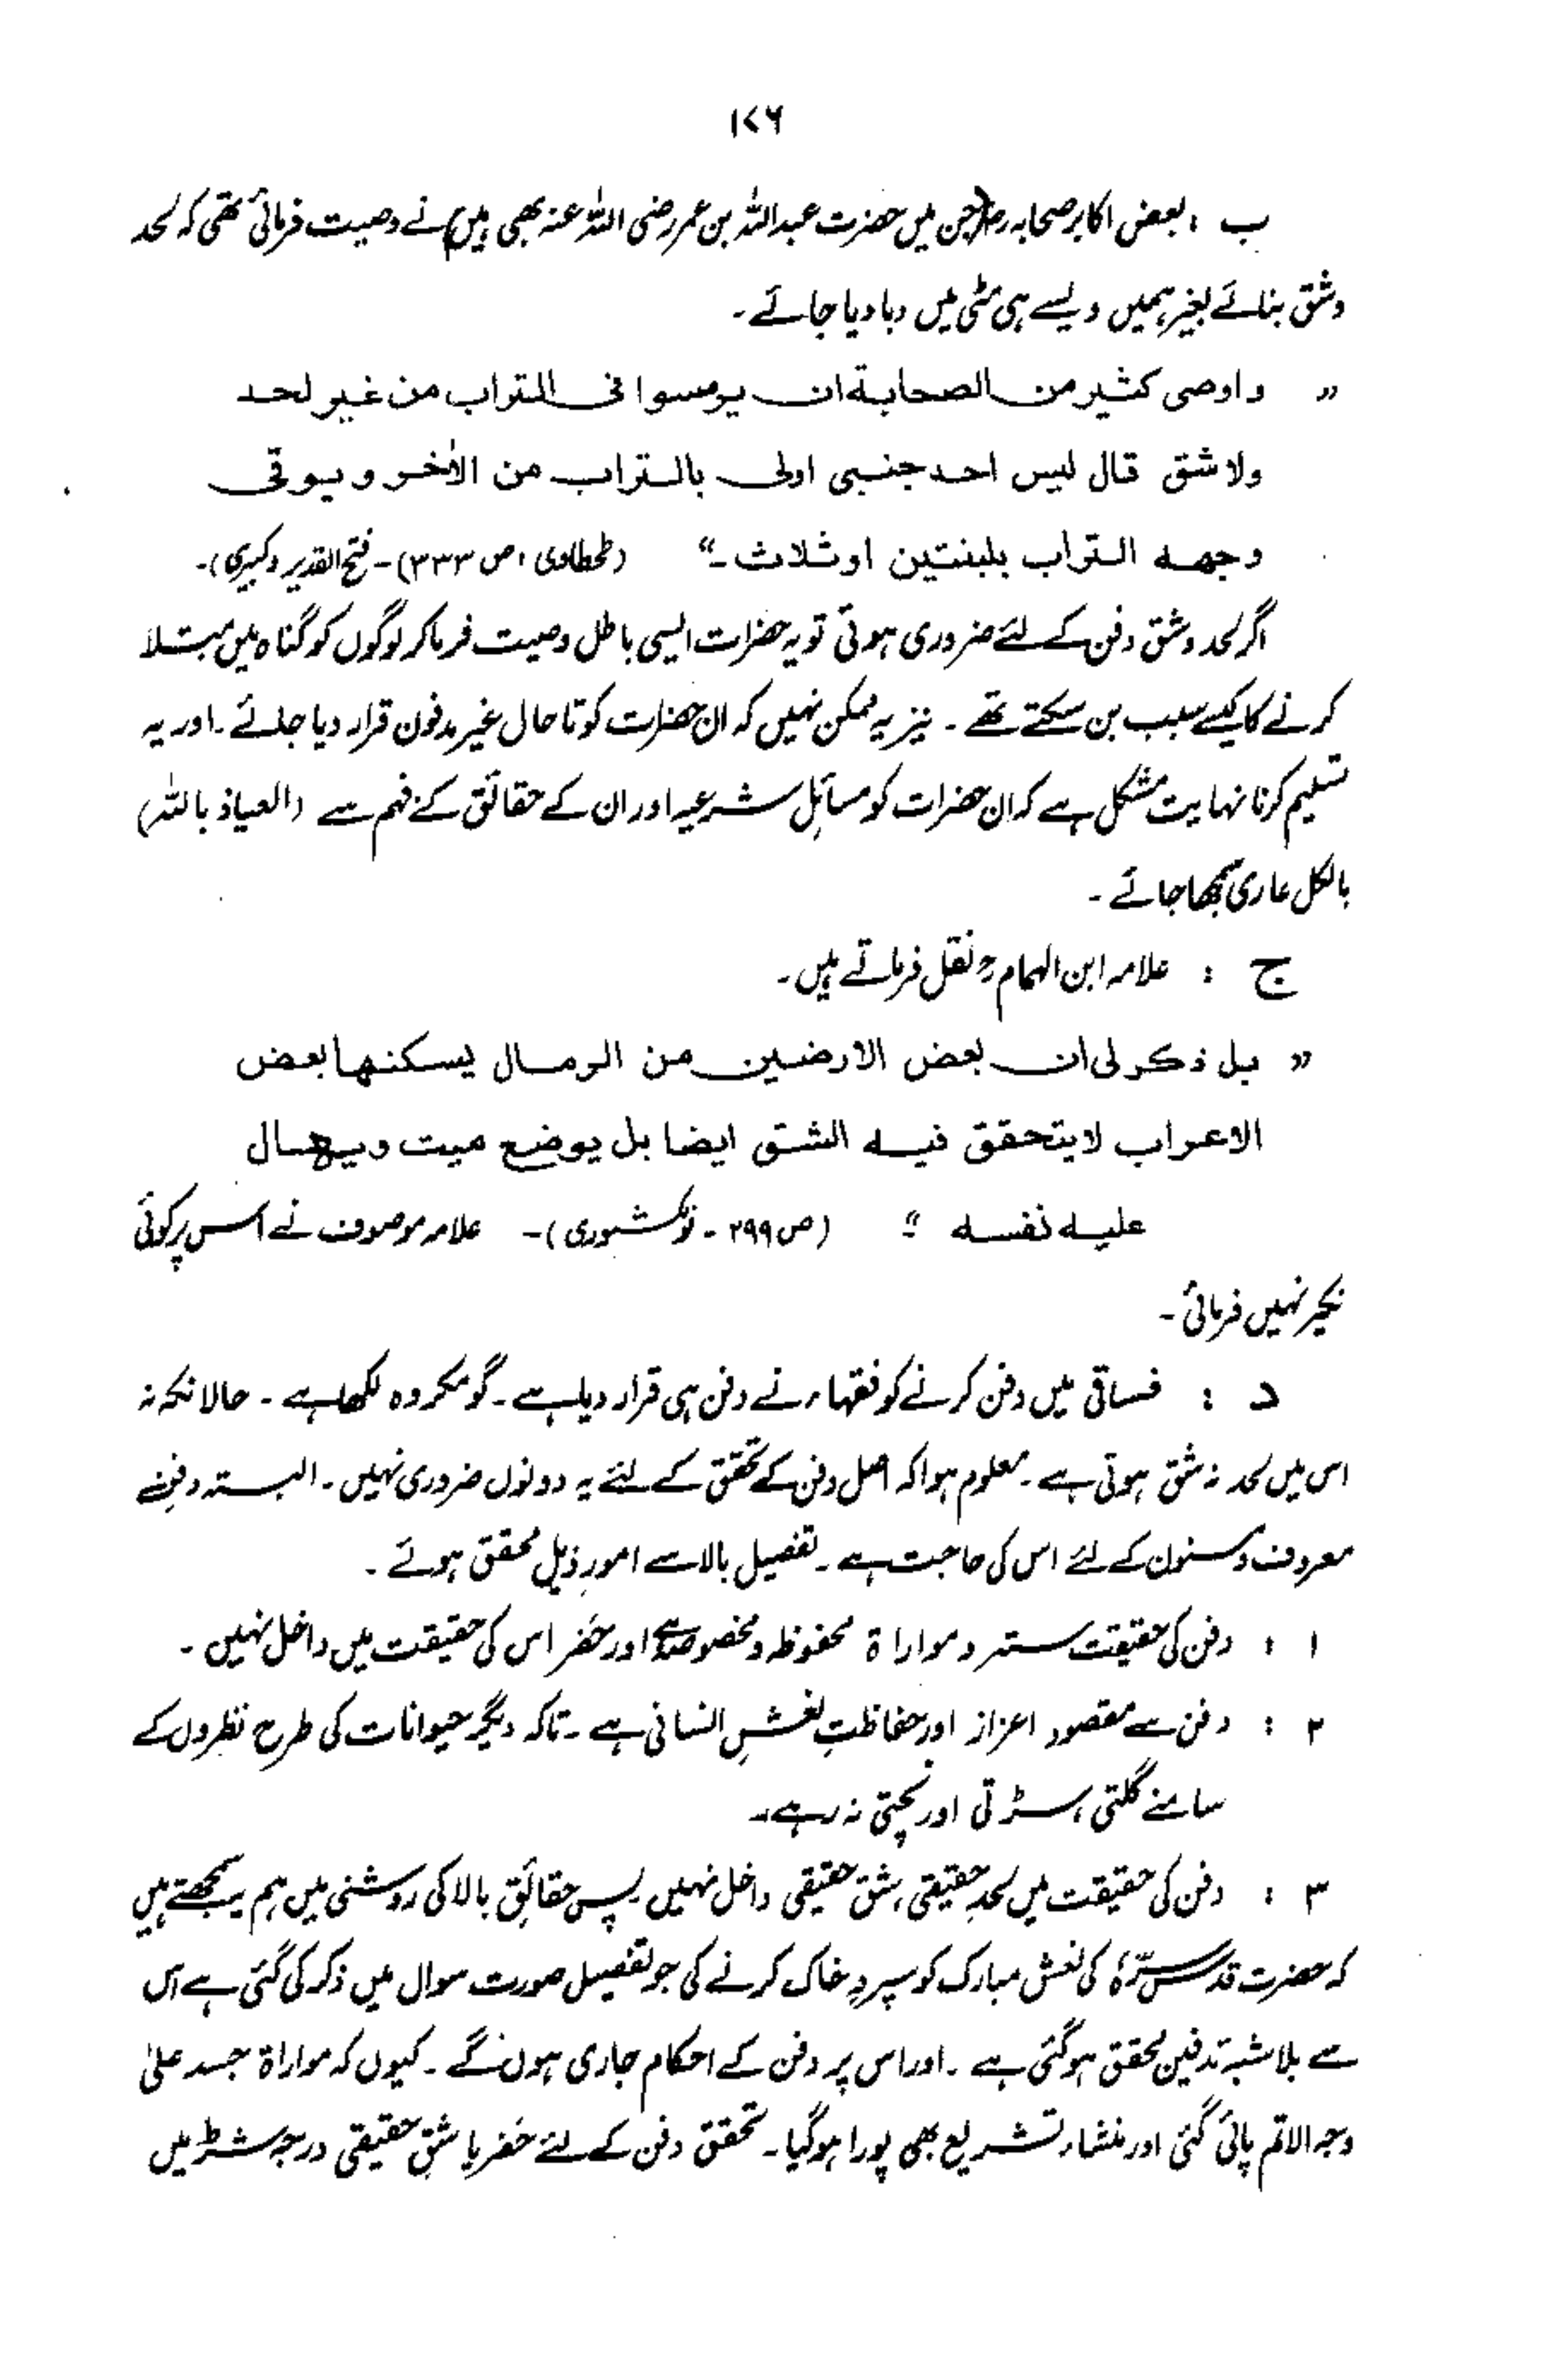 ۱۷۶
ب : بعض اکابر صحابہ رض (جن میں حضرت عبداللہ بن عمر رضی اللہ عنہ بھی ہیں) نے وصیت فرمائی تھی کہ لحد
وشق بنائے بغیر ہمیں ویسے ہی مٹی میں دبا دیا جائے ۔
" واوصی کثیر من الصحابة ان یرمسوا فی التراب من غیر لحد
ولا شق قال لیس احد جنبی اولی بالتراب من الاٰخر ویوقی
وجهه التراب بلبنتین او ثلاث ۔" (طحطاوی ، ص ۳۳۳) ۔ فتح القدیر وکبیری) ۔
اگر لحد وشق دفن کے لئے ضروری ہوتی تو یہ حضرات ایسی باطل وصیت فرما کر لوگوں کو گناہ میں مبتلا
کرنے کا کیسے سبب بن سکتے تھے ۔ نیز یہ ممکن نہیں کہ ان حضرات کو تا حال غیر مدفون قرار دیا جائے ۔ اور یہ
تسلیم کرنا نہایت مشکل ہے کہ ان حضرات کو مسائلِ شرعیہ اور ان کے حقائق کے فہم سے (العیاذ باللہ)
بالکل عاری سمجھا جائے ۔
ج : علامہ ابن الہمام رح نقل فرماتے ہیں ۔
" بل ذکر لی ان بعض الارضین من الرمال یسکنها بعض
الاعراب لا یتحقق فیه الشق ایضا بل یوضع میت ویهال
علیه نفسه " (ص ۲۹۹ ۔ نولکشوری) ۔ علامہ موصوف نے اس پر کوئی
نکیر نہیں فرمائی ۔
د : فساقی میں دفن کرنے کو فقہاء نے دفن ہی قرار دیا ہے ۔ گو مکروہ لکھا ہے ۔ حالانکہ نہ
اس میں لحد نہ شق ہوتی ہے ۔ معلوم ہوا کہ اصل دفن کے تحقق کے لئے یہ دونوں ضروری نہیں ۔ البتہ دفنِ
معروف ومسنون کے لئے اس کی حاجت ہے ۔ تفصیل بالا سے امورِ ذیل محقق ہوئے ۔
۱ : دفن کی حقیقت ستر وموارا ة محفوظہ ومخصوصہ ہے اور حَفر اس کی حقیقت میں داخل نہیں ۔
۲ : دفن سے مقصود اعزاز اور حفاظتِ نعشِ انسانی ہے ۔ تاکہ دیگر حیوانات کی طرح نظروں کے
سامنے گلتی ، سڑتی اور نچتی نہ رہے ۔
۳ : دفن کی حقیقت میں لحدِ حقیقی ، شق حقیقی داخل نہیں پس حقائقِ بالا کی روشنی میں ہم یہ سمجھتے ہیں
کہ حضرت قدس سرّہٗ کی نعش مبارک کو سپردِ خاک کرنے کی جو تفصیل صورت سوال میں ذکر کی گئی ہے اس
سے بلا شبہ تدفین محقق ہوگئی ہے ۔ اور اس پر دفن کے احکام جاری ہوں گے ۔ کیوں کہ مواراة جسد علیٰ
وجہ الاتم پائی گئی اور منشاء تشریع بھی پورا ہوگیا ۔ تحقق دفن کے لئے حَفر یا شقِ حقیقی درجہ شرط میں